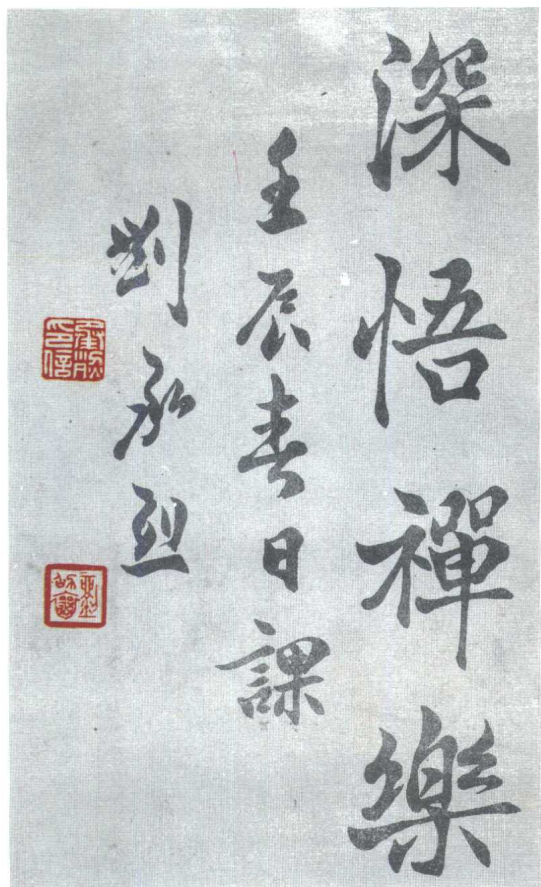 深悟禪樂
壬辰春日課
劉永烈